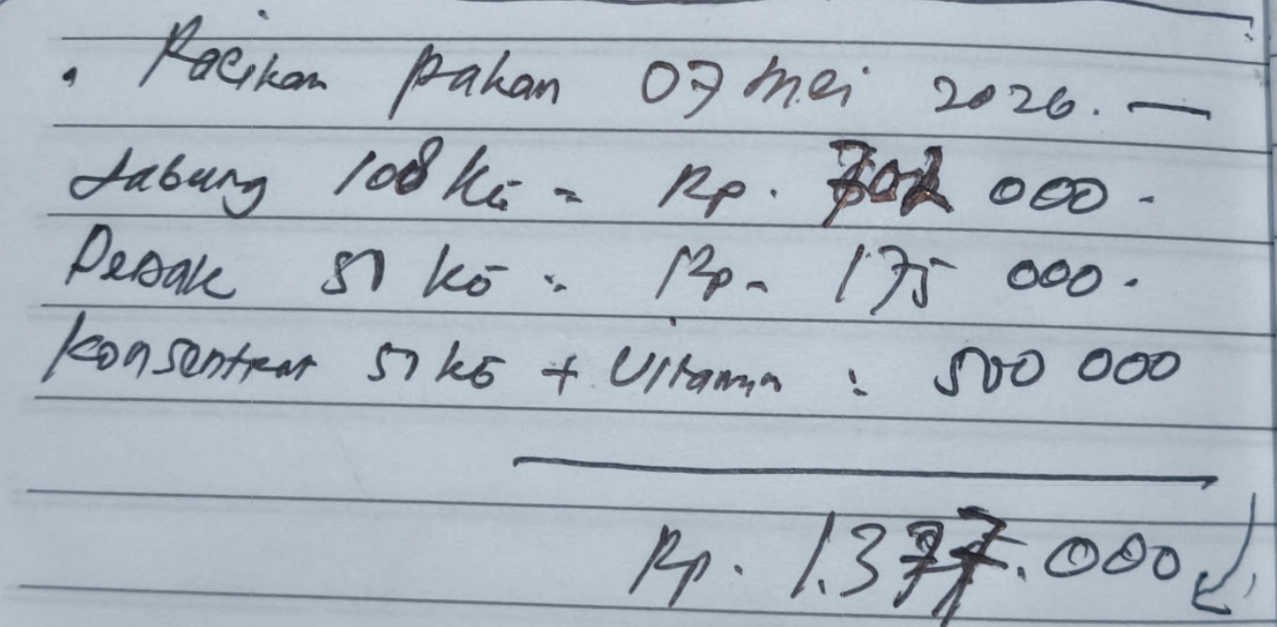 . Racikan pakan 07 mei 2026. —
Jabung 108 kō = Rp. 702 000 -
Dedak 51 kō : Rp. 175 000.
Konsentrat 51 kō + Vitamin : 500 000
Rp. 1.377.000